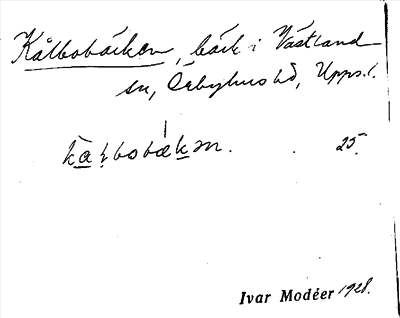 Kålbobäcken, bäck i Västland
sn, Örbyhus hd, Upps. l.
kạ̀ḷbobækən. . 25.
Ivar Modéer 1928.